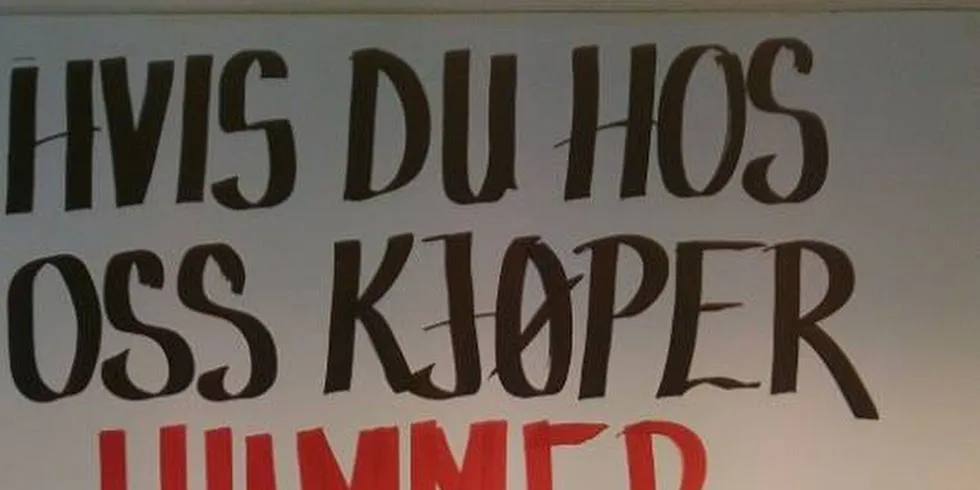 HVIS DU HOS
OSS KJØPER
HUMMER